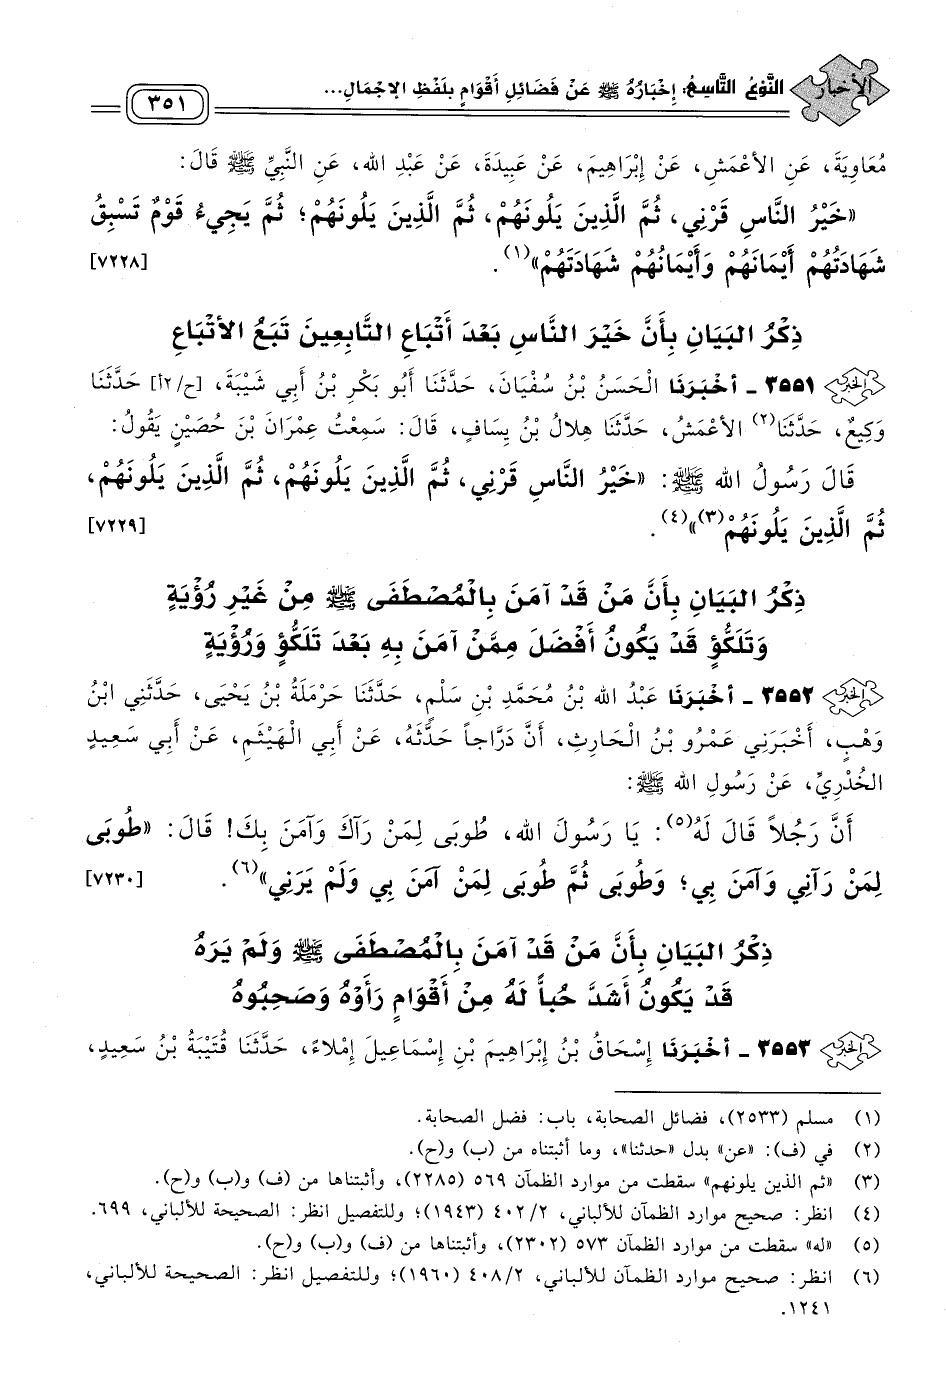 الأخبار
النَّوْعُ التَّاسِعُ: إِخْبَارُهُ ﷺ عَنْ فَضَائِلِ أَقْوَامٍ بِلَفْظِ الإِجْمَالِ...
٣٥١
مُعَاوِيَةَ، عَنِ الأَعْمَشِ، عَنْ إِبْرَاهِيمَ، عَنْ عَبِيدَةَ، عَنْ عَبْدِ الله، عَنِ النَّبِيِّ ﷺ قَالَ:
«خَيْرُ النَّاسِ قَرْنِي، ثُمَّ الَّذِينَ يَلُونَهُمْ، ثُمَّ الَّذِينَ يَلُونَهُمْ؛ ثُمَّ يَجِيءُ قَوْمٌ تَسْبِقُ
شَهَادَتُهُمْ أَيْمَانَهُمْ وَأَيْمَانُهُمْ شَهَادَتَهُمْ»(١). [٧٢٢٨]
ذِكْرُ البَيَانِ بِأَنَّ خَيْرَ النَّاسِ بَعْدَ أَتْبَاعِ التَّابِعِينَ تَبَعُ الأَتْبَاعِ
٣٥٥١ ـ أَخْبَرَنَا الْحَسَنُ بْنُ سُفْيَانَ، حَدَّثَنَا أَبُو بَكْرِ بْنُ أَبِي شَيْبَةَ، [ح/٢أ] حَدَّثَنَا
وَكِيعٌ، حَدَّثَنَا(٢) الأَعْمَشُ، حَدَّثَنَا هِلَالُ بْنُ يِسَافٍ، قَالَ: سَمِعْتُ عِمْرَانَ بْنَ حُصَيْنٍ يَقُولُ:
قَالَ رَسُولُ الله ﷺ: «خَيْرُ النَّاسِ قَرْنِي، ثُمَّ الَّذِينَ يَلُونَهُمْ، ثُمَّ الَّذِينَ يَلُونَهُمْ،
ثُمَّ الَّذِينَ يَلُونَهُمْ(٣)»(٤). [٧٢٢٩]
ذِكْرُ البَيَانِ بِأَنَّ مَنْ قَدْ آمَنَ بِالْمُصْطَفَى ﷺ مِنْ غَيْرِ رُؤْيَةٍ
وَتَلَكُّؤٍ قَدْ يَكُونُ أَفْضَلَ مِمَّنْ آمَنَ بِهِ بَعْدَ تَلَكُّؤٍ وَرُؤْيَةٍ
٣٥٥٢ ـ أَخْبَرَنَا عَبْدُ الله بْنُ مُحَمَّدِ بْنِ سَلْمٍ، حَدَّثَنَا حَرْمَلَةُ بْنُ يَحْيَى، حَدَّثَنِي ابْنُ
وَهْبٍ، أَخْبَرَنِي عَمْرُو بْنُ الْحَارِثِ، أَنَّ دَرَّاجاً حَدَّثَهُ، عَنْ أَبِي الْهَيْثَمِ، عَنْ أَبِي سَعِيدٍ
الْخُدْرِيِّ، عَنْ رَسُولِ الله ﷺ:
أَنَّ رَجُلاً قَالَ لَهُ(٥): يَا رَسُولَ الله، طُوبَى لِمَنْ رَآكَ وَآمَنَ بِكَ! قَالَ: «طُوبَى
لِمَنْ رَآنِي وَآمَنَ بِي؛ وَطُوبَى ثُمَّ طُوبَى لِمَنْ آمَنَ بِي وَلَمْ يَرَنِي»(٦). [٧٢٣٠]
ذِكْرُ البَيَانِ بِأَنَّ مَنْ قَدْ آمَنَ بِالْمُصْطَفَى ﷺ وَلَمْ يَرَهُ
قَدْ يَكُونُ أَشَدَّ حُبّاً لَهُ مِنْ أَقْوَامٍ رَأَوْهُ وَصَحِبُوهُ
٣٥٥٣ ـ أَخْبَرَنَا إِسْحَاقُ بْنُ إِبْرَاهِيمَ بْنِ إِسْمَاعِيلَ إِمْلَاءً، حَدَّثَنَا قُتَيْبَةُ بْنُ سَعِيدٍ،
(١) مسلم (٢٥٣٣)، فضائل الصحابة، باب: فضل الصحابة.
(٢) في (ف): «عن» بدل «حدثنا»، وما أثبتناه من (ب) و(ح).
(٣) «ثم الذين يلونهم» سقطت من موارد الظمآن ٥٦٩ (٢٢٨٥)، وأثبتناها من (ف) و(ب) و(ح).
(٤) انظر: صحيح موارد الظمآن للألباني، ٤٠٢/٢ (١٩٤٣)؛ وللتفصيل انظر: الصحيحة للألباني، ٦٩٩.
(٥) «له» سقطت من موارد الظمآن ٥٧٣ (٢٣٠٢)، وأثبتناها من (ف) و(ب) و(ح).
(٦) انظر: صحيح موارد الظمآن للألباني، ٤٠٨/٢ (١٩٦٠)؛ وللتفصيل انظر: الصحيحة للألباني،
١٢٤١.